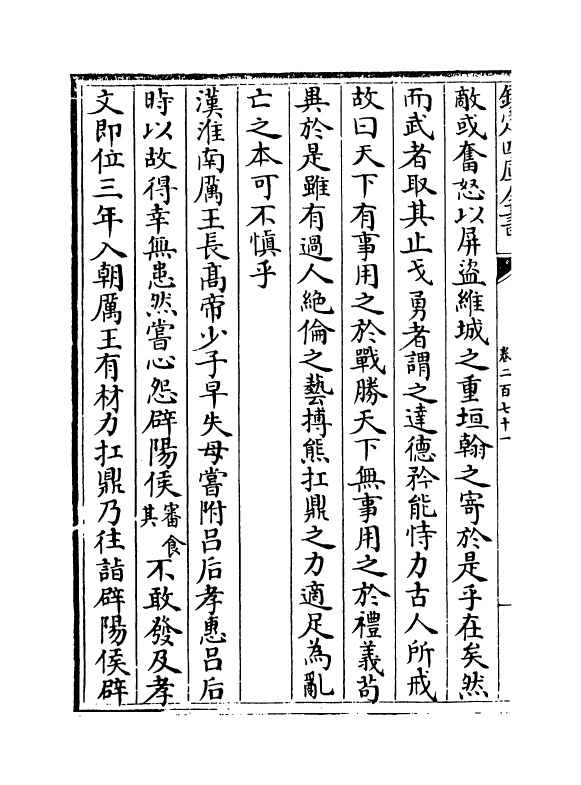 欽定四庫全書
卷二百七十一
敵或奮怒以屏盜維城之重垣翰之寄於是乎在矣然
而武者取其止戈勇者謂之達德矜能恃力古人所戒
故曰天下有事用之於戰勝天下無事用之於禮義茍
異於是雖有過人絶倫之藝搏熊扛鼎之力適足為亂
亡之本可不慎乎
漢淮南厲王長髙帝少子早失母嘗附吕后孝惠吕后
時以故得幸無患然嘗心怨辟陽侯審食其不敢發及孝
文即位三年入朝厲王有材力扛鼎乃往詣辟陽侯辟